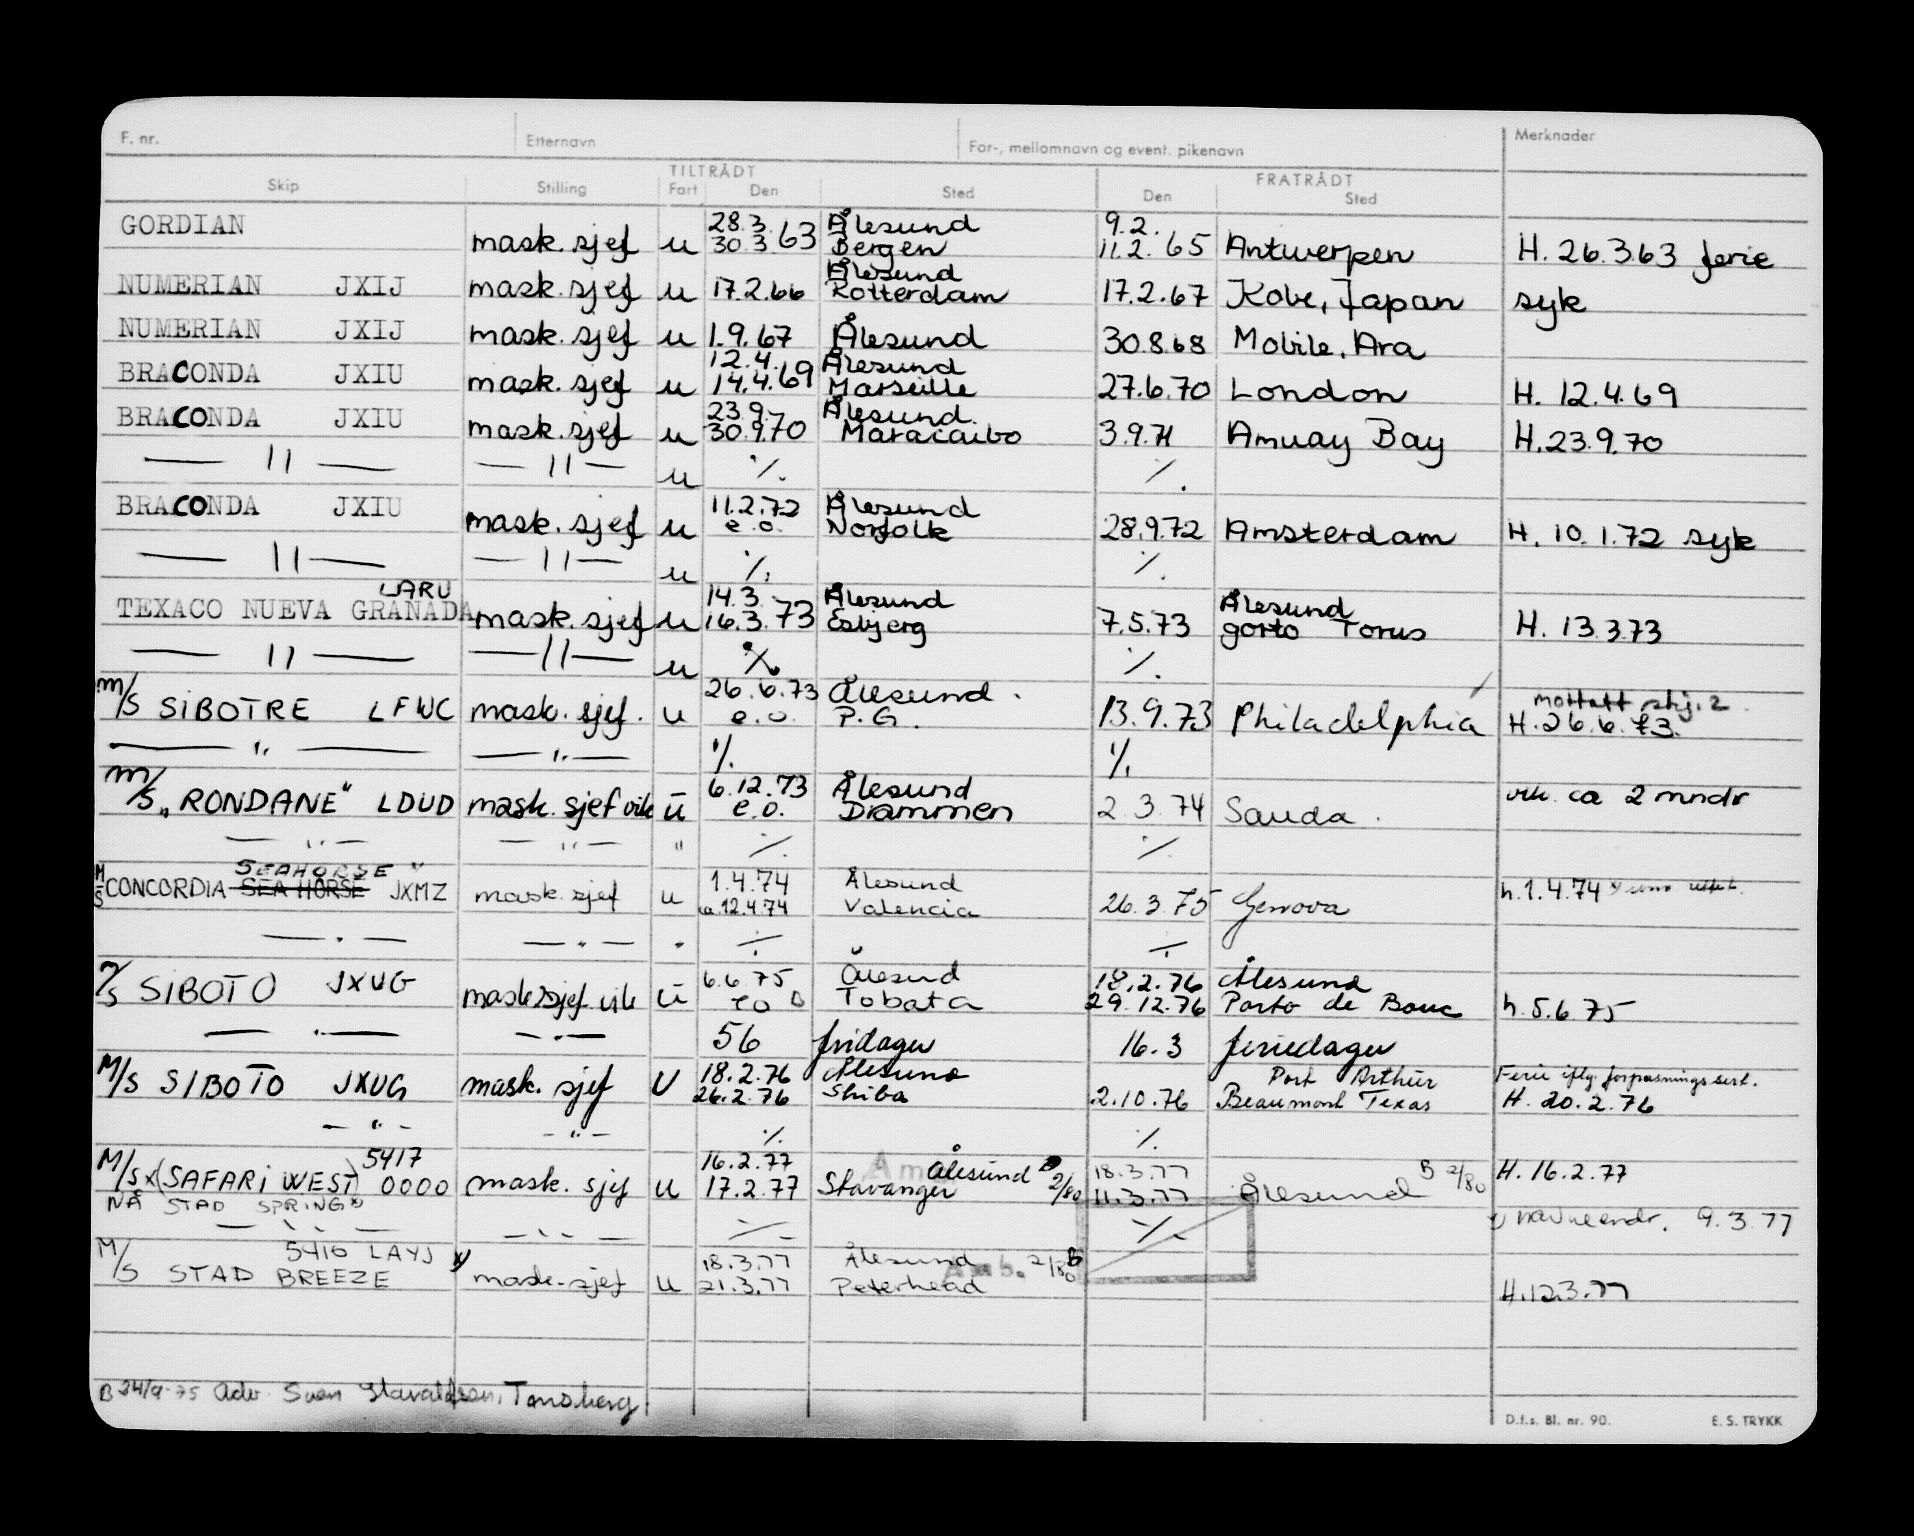 F. nr. Etternavn For-, mellomnavn og event. pikenavn Merknader
TILTRÅDT FRATRÅDT
Skip Stilling Fart Den Sted Den Sted
28.3. Ålesund 9.2.
GORDIAN mask. sjef u 30.3.63 Bergen 11.2.65 Antwerpen H. 26.3.63 ferie
Ålesund
NUMERIAN JXIJ mask. sjef u 17.2.66 Rotterdam 17.2.67 Kobe, Japan syk
NUMERIAN JXIJ mask. sjef u 1.9.67 Ålesund 30.8.68 Mobile, Ara
12.4. Ålesund
BRACONDA JXIU mask. sjef u 14.4.69 Marseille 27.6.70 London H. 12.4.69
23.9. Ålesund.
BRACONDA JXIU mask. sjef u 30.9.70 Maracaibo 3.9.71 Amuay Bay H. 23.9.70
— " — — " — u ./. ./.
11.2.72 Ålesund
BRACONDA JXIU mask. sjef u e.o. Norfolk 28.9.72 Amsterdam H. 10.1.72 syk
— " — — " — u ./. ./.
LARU 14.3. Ålesund Ålesund
TEXACO NUEVA GRANADA mask. sjef u 16.3.73 Esbjerg 7.5.73 gorto Torus H. 13.3.73
— " — — " — u ./. ./.
26.6.73 Ålesund. mottatt shj. 2
M/S SIBOTRE LFWC mask. sjef. u e.o. P.G. 13.9.73 Philadelphia H. 26.6.73.
— " — — " — ./. ./.
6.12.73 Ålesund
M/S "RONDANE" LDUD mask. sjef vik ū e.o. Drammen 2.3.74 Sauda. vik. ca 2 mndr
— " — — " — " ./. ./.
SEAHORSE" 1.4.74 Ålesund
M/S CONCORDIA SEA HORSE JXMZ mask. sjef u ca 12.4.74 Valencia 26.3.75 Genova h. 1.4.74
— " — — " — " ./. ./.
6.6.75 Ålesund 18.2.76 Ålesund
SIBOTO JXUG mask sjef vik ū eo Tobata 29.12.76 Porto de Bouc h. 5.6.75
— " — — " — 56 fridager 16.3 feriedager
18.2.76 Ålesund Port Arthur Ferie iflg. forpasningssert.
M/S SIBOTO JXUG mask. sjef U 26.2.76 Shiba 2.10.76 Beaumont Texas H. 20.2.76
— " — — " — ./. ./.
5417 16.2.77 Ålesund B 2/80 18.3.77 B 2/80 H. 16.2.77
M/S x (SAFARI WEST) 0000 mask. sjef u 17.2.77 Stavanger 11.3.77 Ålesund
NÅ STAD SPRING" x) navneendr. 9.3.77
— " — — " — ./. ./.
5416 LAYJ 18.3.77 Ålesund Amb. 2/80 B
M/S STAD BREEZE mask. sjef u 21.3.77 Peterhead H. 12.3.77
B 24/9-75 Adv. Sven Tønsberg
D.f.s. Bl. nr. 90. E. S. TRYKK